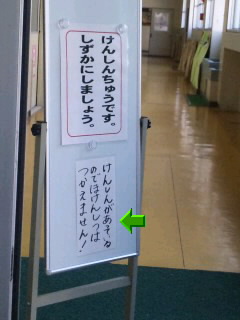 けんしんちゅうです。
しずかにしましょう。
けんしんがある
のでほけんしつは
つかえません!